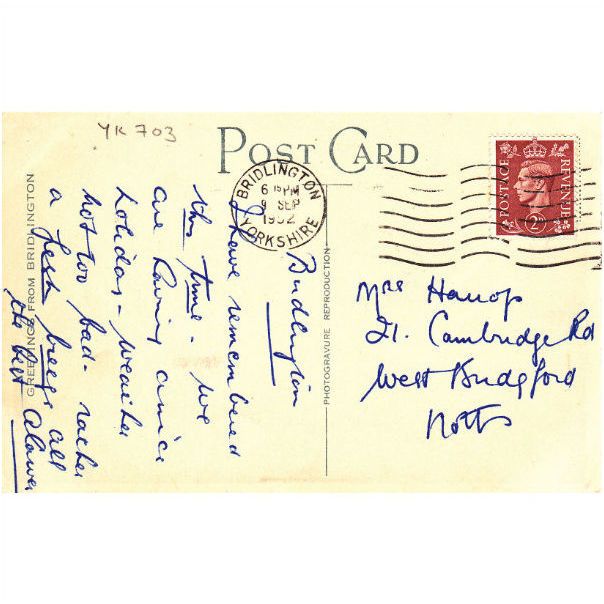 YK 703
POST CARD
BRIDLINGTON
6 15 PM
9 SEP
1952
YORKSHIRE
POSTAGE
REVENUE
2D
GREETINGS FROM BRIDLINGTON
PHOTOGRAVURE REPRODUCTION
Bridlington
I have remembered
this time - we
are having a nice
holiday - weather
not too bad - rather
a fresh breeze all
the best
Mrs
21. Cambridge Rd
West Bridgford
Notts